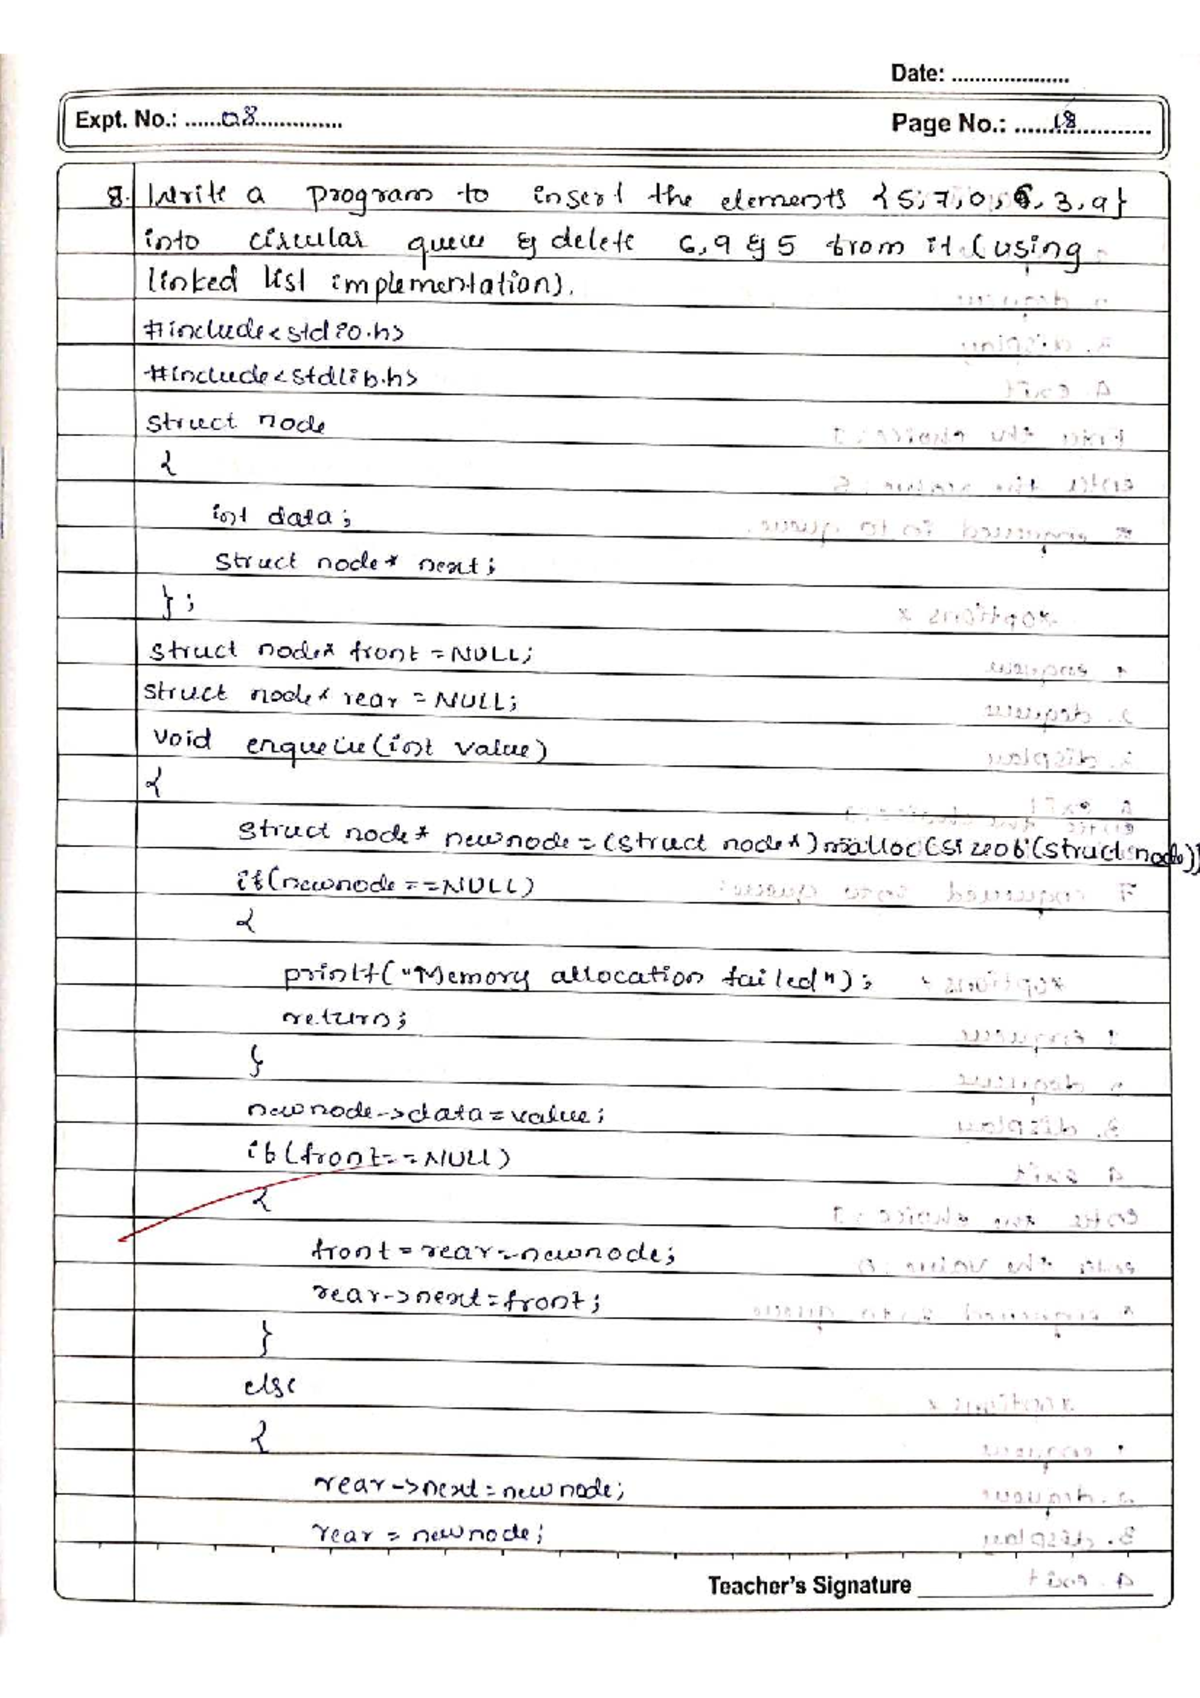 Date: ....................
Expt. No.: ......08...............
Page No.: ......18.............
8. Write a program to insert the elements {5,7,0,6,3,9}
into circular queue & delete 6,9 & 5 from it (using
linked list implementation).
#include<stdio.h>
#include<stdlib.h>
struct node
{
int data;
struct node* next;
};
struct node* front = NULL;
struct node* rear = NULL;
void enqueue(int value)
{
struct node* newnode = (struct node*)malloc(sizeof(struct node))
if(newnode==NULL)
{
printf("Memory allocation failed");
return;
}
newnode->data=value;
if(front==NULL)
{
front=rear=newnode;
rear->next=front;
}
else
{
rear->next=newnode;
rear = newnode;
Teacher's Signature